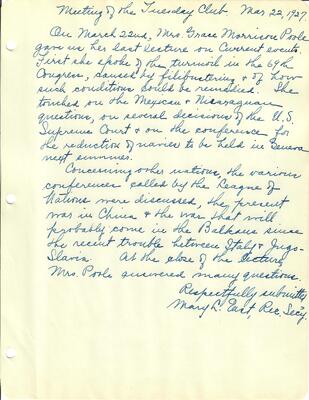 Meeting of the Tuesday Club Mar. 22, 1927.
On March 22nd, Mrs. Grace Morrison Poole
gave us her last lecture on Current events.
First she spoke of the turmoil in the 69th
Congress, caused by filibustering & of how
such conditions could be remedied. She
touched on the Mexican & Nicaraguan
questions, on several decisions of the U.S.
Supreme Court & on the conference for
the reduction of navies to be held in Geneva
next summer.
Concerning other nations, the various
conferences called by the League of
Nations were discussed, the present
war in China & the war that will
probably come in the Balkans since
the recent trouble between Italy & Jugo-
Slavia. At the close of the lecture
Mrs. Poole answered many questions.
Respectfully submitted
Mary L. East, Rec. Sec'y.